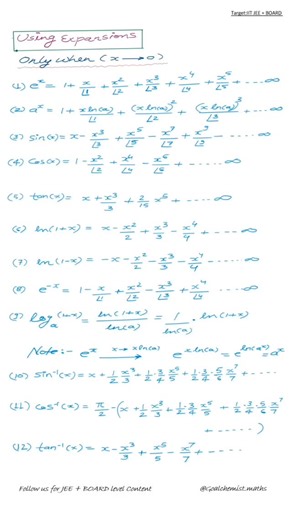 Target:IIT JEE + BOARD
Using Expansions
Only when (x → 0)
(1) e^x = 1 + x/∟1 + x²/∟2 + x³/∟3 + x⁴/∟4 + x⁵/∟5 + ---- ∞
(2) a^x = 1 + xln(a)/∟1 + (xln(a))²/∟2 + (xln(a))³/∟3 + -- ∞
(3) sin(x) = x - x³/∟3 + x⁵/∟5 - x⁷/∟7 + x⁹/∟9 - ---- ∞
(4) Cos(x) = 1 - x²/∟2 + x⁴/∟4 - x⁶/∟6 + ---- ∞
(5) tan(x) = x + x³/3 + 2/15 x⁵ + ---- ∞
(6) ln(1+x) = x - x²/2 + x³/3 - x⁴/4 + ---- ∞
(7) ln(1-x) = -x - x²/2 - x³/3 - x⁴/4 - ---- ∞
(8) e^-x = 1 - x/∟1 + x²/∟2 - x³/∟3 + x⁴/∟4 ---- ∞
(9) log_a(1+x) = ln(1+x)/ln(a) = 1/ln(a) · ln(1+x)
Note:- e^x x→xln(a) e^xln(a) = e^ln(a^x) = a^x
(10) Sin⁻¹(x) = x + 1/2 x³/3 + 1·3/2·4 x⁵/5 + 1·3·5/2·4·6 x⁷/7 + ----
(11) Cos⁻¹(x) = π/2 - (x + 1/2 x³/3 + 1·3/2·4 x⁵/5 + 1·3·5/2·4·6 x⁷/7
+ -----)
(12) tan⁻¹(x) = x - x³/3 + x⁵/5 - x⁷/7 + ----
Follow us for JEE + BOARD level Content
@Goalchemist.maths